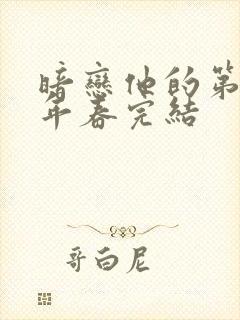 暗戀他的第
年春完結
哥白尼